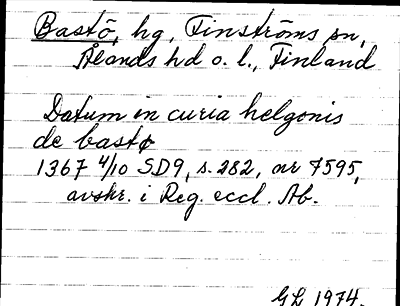 Bastö, hg, Finströms sn,
Ålands hd o. l., Finland
Datum in curia helgonis
de bastø
1367 4/10 SD9, s. 282, nr 7595,
avskr. i Reg. eccl. Ab.
GL 1974.